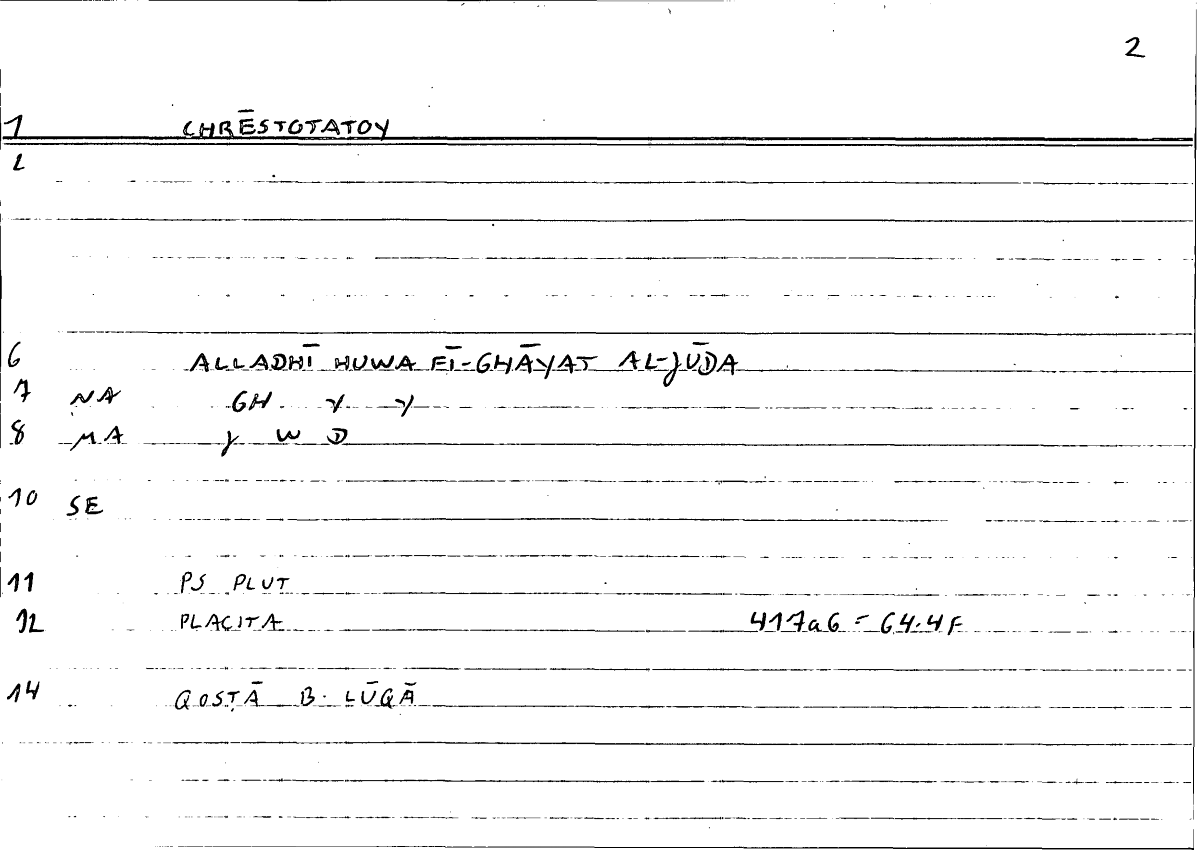 2
1 CHRĒSTOTATOY
2
6 ALLADHĪ HUWA FĪ-GHĀYAT AL-JŪDA
7 NA GH Y Y
8 MA J W D
10 SE
11 PS PLUT
12 PLACITA 417a6 = 64.4F
14 QOSṬĀ B. LŪQĀ